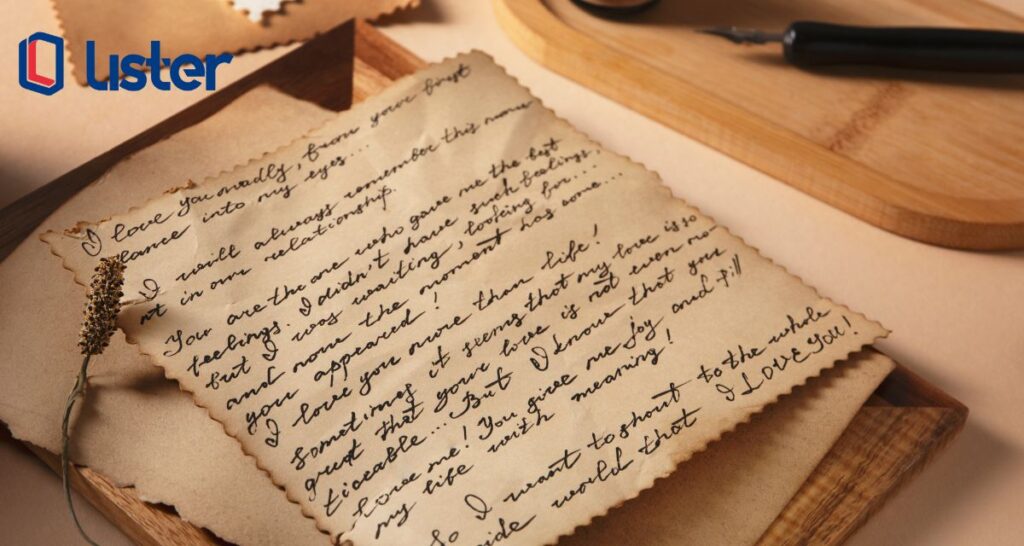 Lister
I love you madly, from your first
glance into my eyes...
I will always remember this mome
nt in our relationship.
You are the one who gave me the best
feelings. I didn't have such feelings.
but I was waiting, looking for...
and now the moment has come...
you appeared!
I love you more than life!
Sometimes it seems that my love is so
great that your love is not even no
ticeable... But I know that you
love me! You give me joy and fill
my life with meaning!
So I want to shout to the whole
wide world that I LOVE YOU!